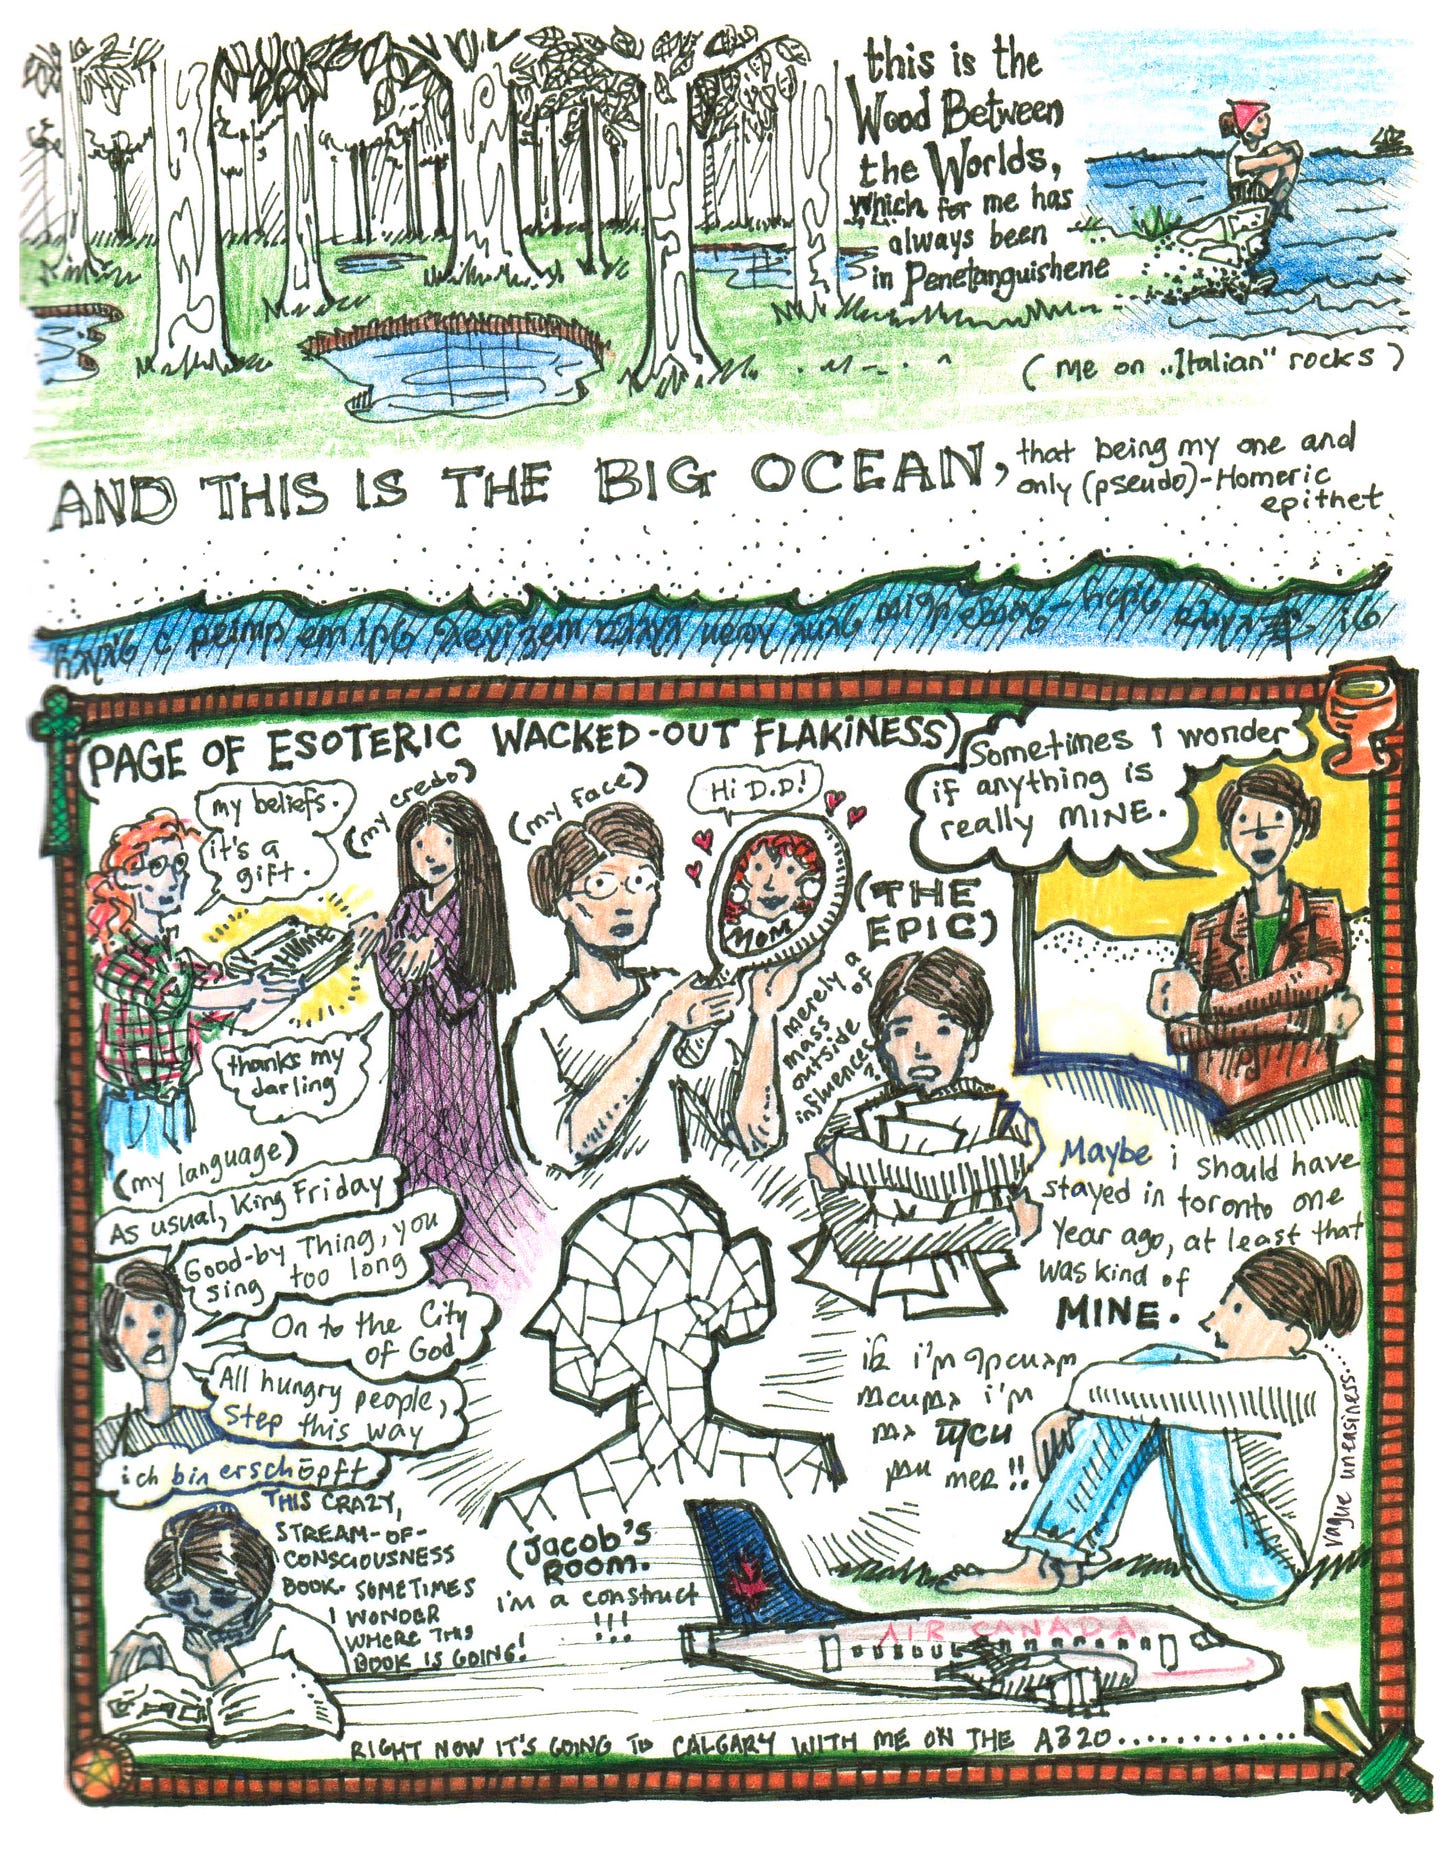 this is the
Wood Between
the Worlds,
which for me has
always been
in Penetanguishene
(me on „Italian" rocks)
AND THIS IS THE BIG OCEAN,
that being my one and
only (pseudo)-Homeric
epithet.
(PAGE OF ESOTERIC WACKED-OUT FLAKINESS)
my beliefs.
it's a
gift.
(my credo)
HOME
thanks my
darling
(my face)
Hi D.D!
MOM
(THE
EPIC)
merely a
mass of
outside
influences?
Sometimes i wonder
if anything is
really MINE.
Maybe i should have
stayed in toronto one
year ago, at least that
was kind of
MINE.
(my language)
As usual, King Friday
Good-by Thing, you
sing too long
On to the City
of God
All hungry people,
step this way
ich bin erschöpft
i'm
i'm
!!
vague uneasiness...
THIS CRAZY,
STREAM-OF-
CONSCIOUSNESS
BOOK. SOMETIMES
I WONDER
WHERE THIS
BOOK IS GOING!
(Jacob's
ROOM.
i'm a construct
!!!
AIR CANADA
RIGHT NOW IT'S GOING TO CALGARY WITH ME ON THE A320..............